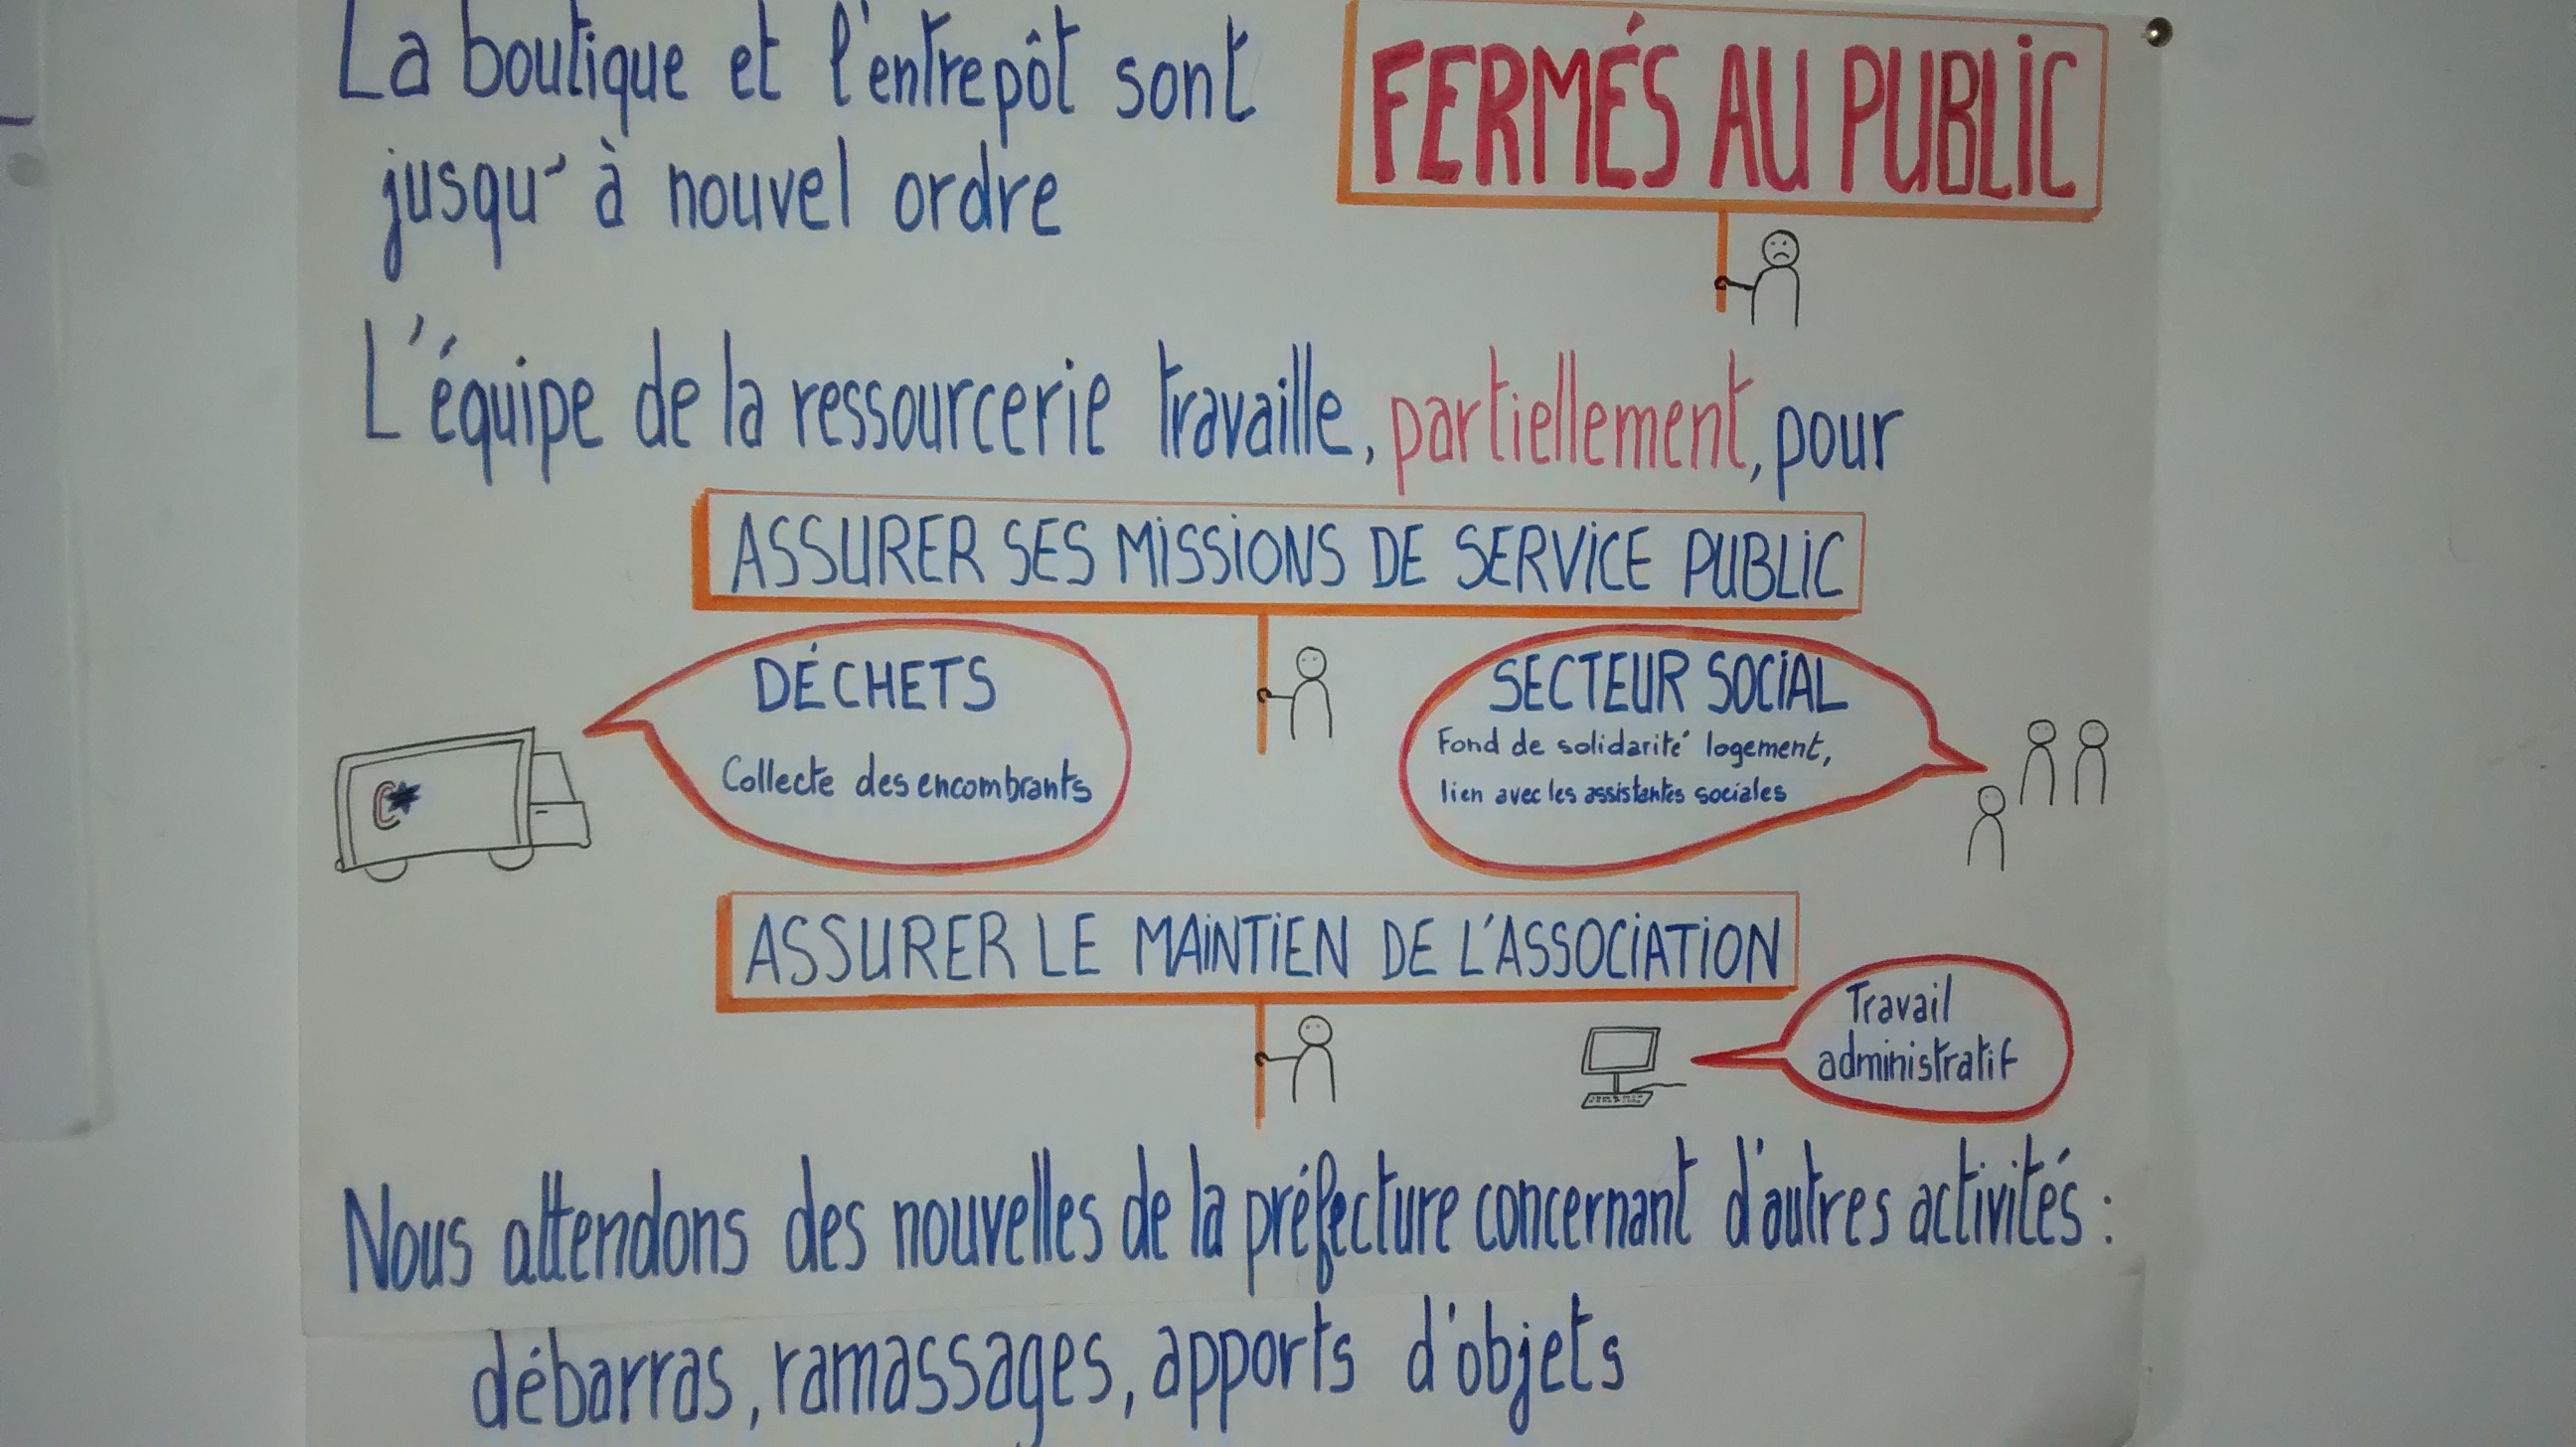 La boutique et l'entrepôt sont
FERMÉS AU PUBLIC
jusqu'à nouvel ordre
L'équipe de la ressourcerie travaille, partiellement, pour
ASSURER SES MISSIONS DE SERVICE PUBLIC
DÉCHETS
Collecte des encombrants
SECTEUR SOCIAL
Fond de solidarité logement,
lien avec les assistantes sociales
C*
ASSURER LE MAINTIEN DE L'ASSOCIATION
Travail
administratif
Nous attendons des nouvelles de la préfecture concernant d'autres activités :
débarras, ramassages, apports d'objets